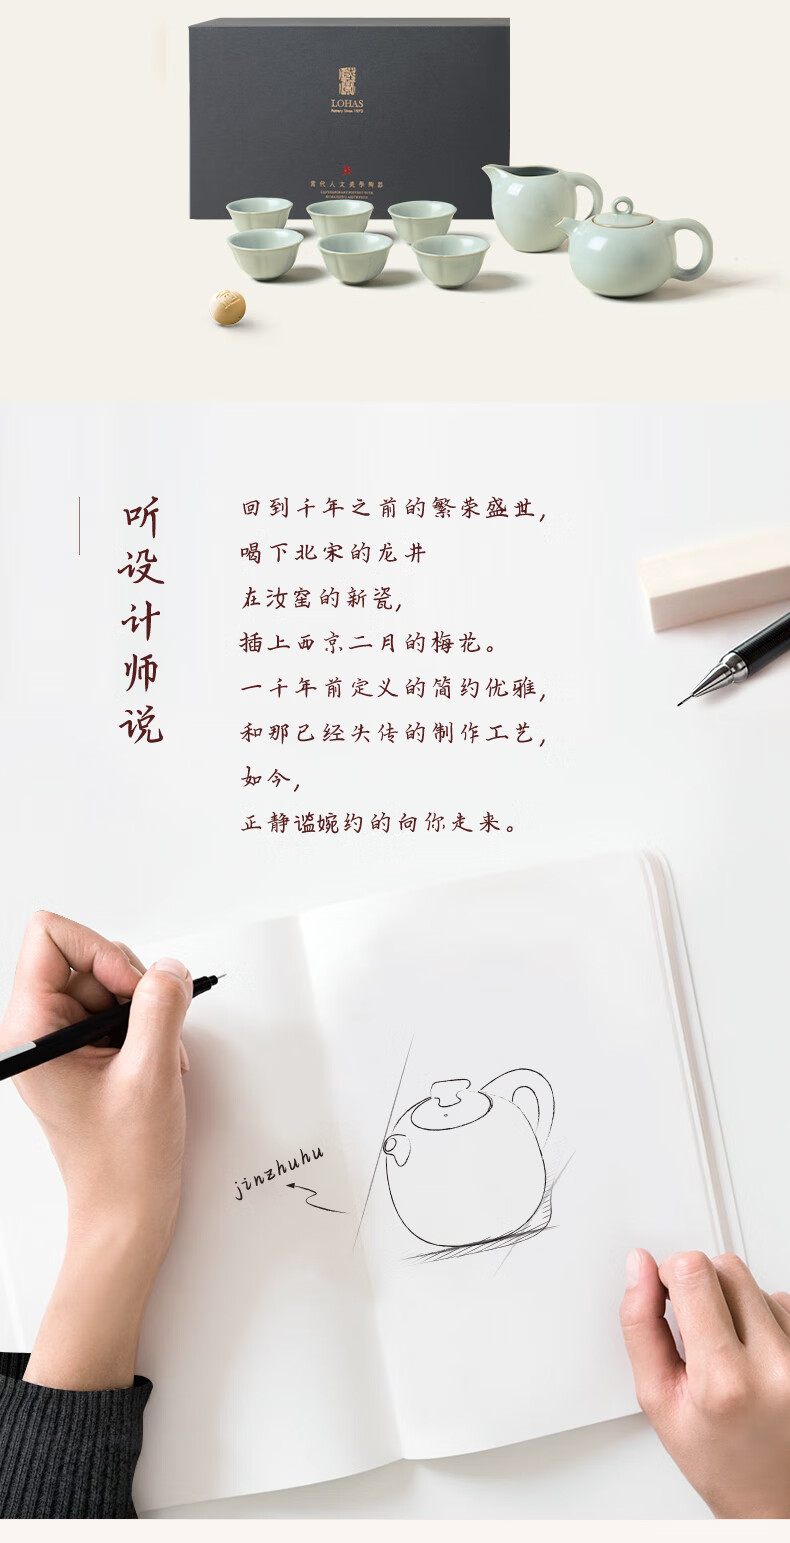 LOHAS
Pottery Since 1975
當代人文美學陶器
听设计师说
回到千年之前的繁荣盛世,
喝下北宋的龙井
在汝窑的新瓷,
插上西京二月的梅花。
一千年前定义的简约优雅,
和那已经失传的制作工艺,
如今,
正静谧婉约的向你走来。
jinzhuhu